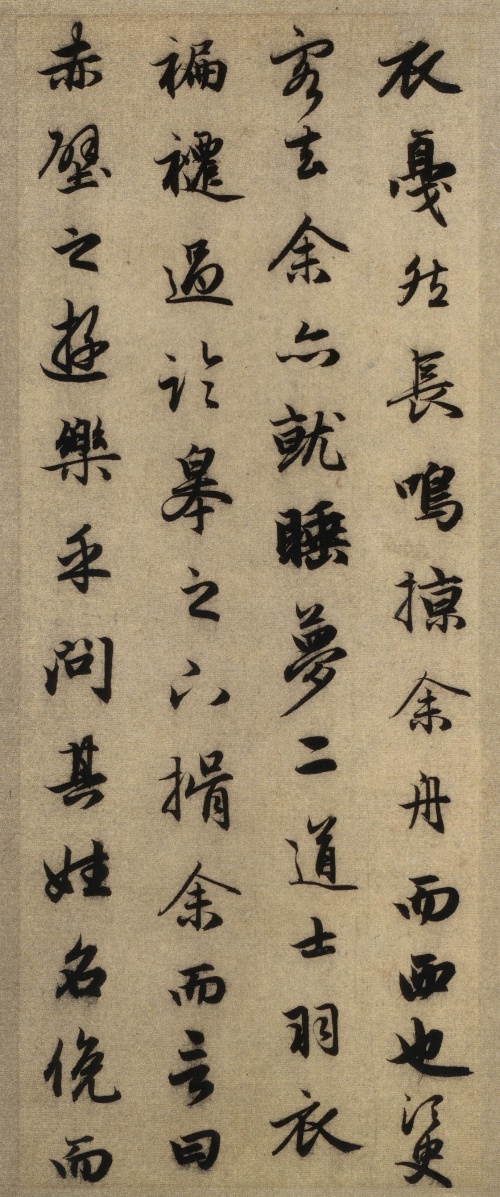 衣戛然長鳴掠余舟而西也須臾
客去余亦就睡夢二道士羽衣
褊褼過臨皋之下揖余而言曰
赤壁之遊樂乎問其姓名俛而